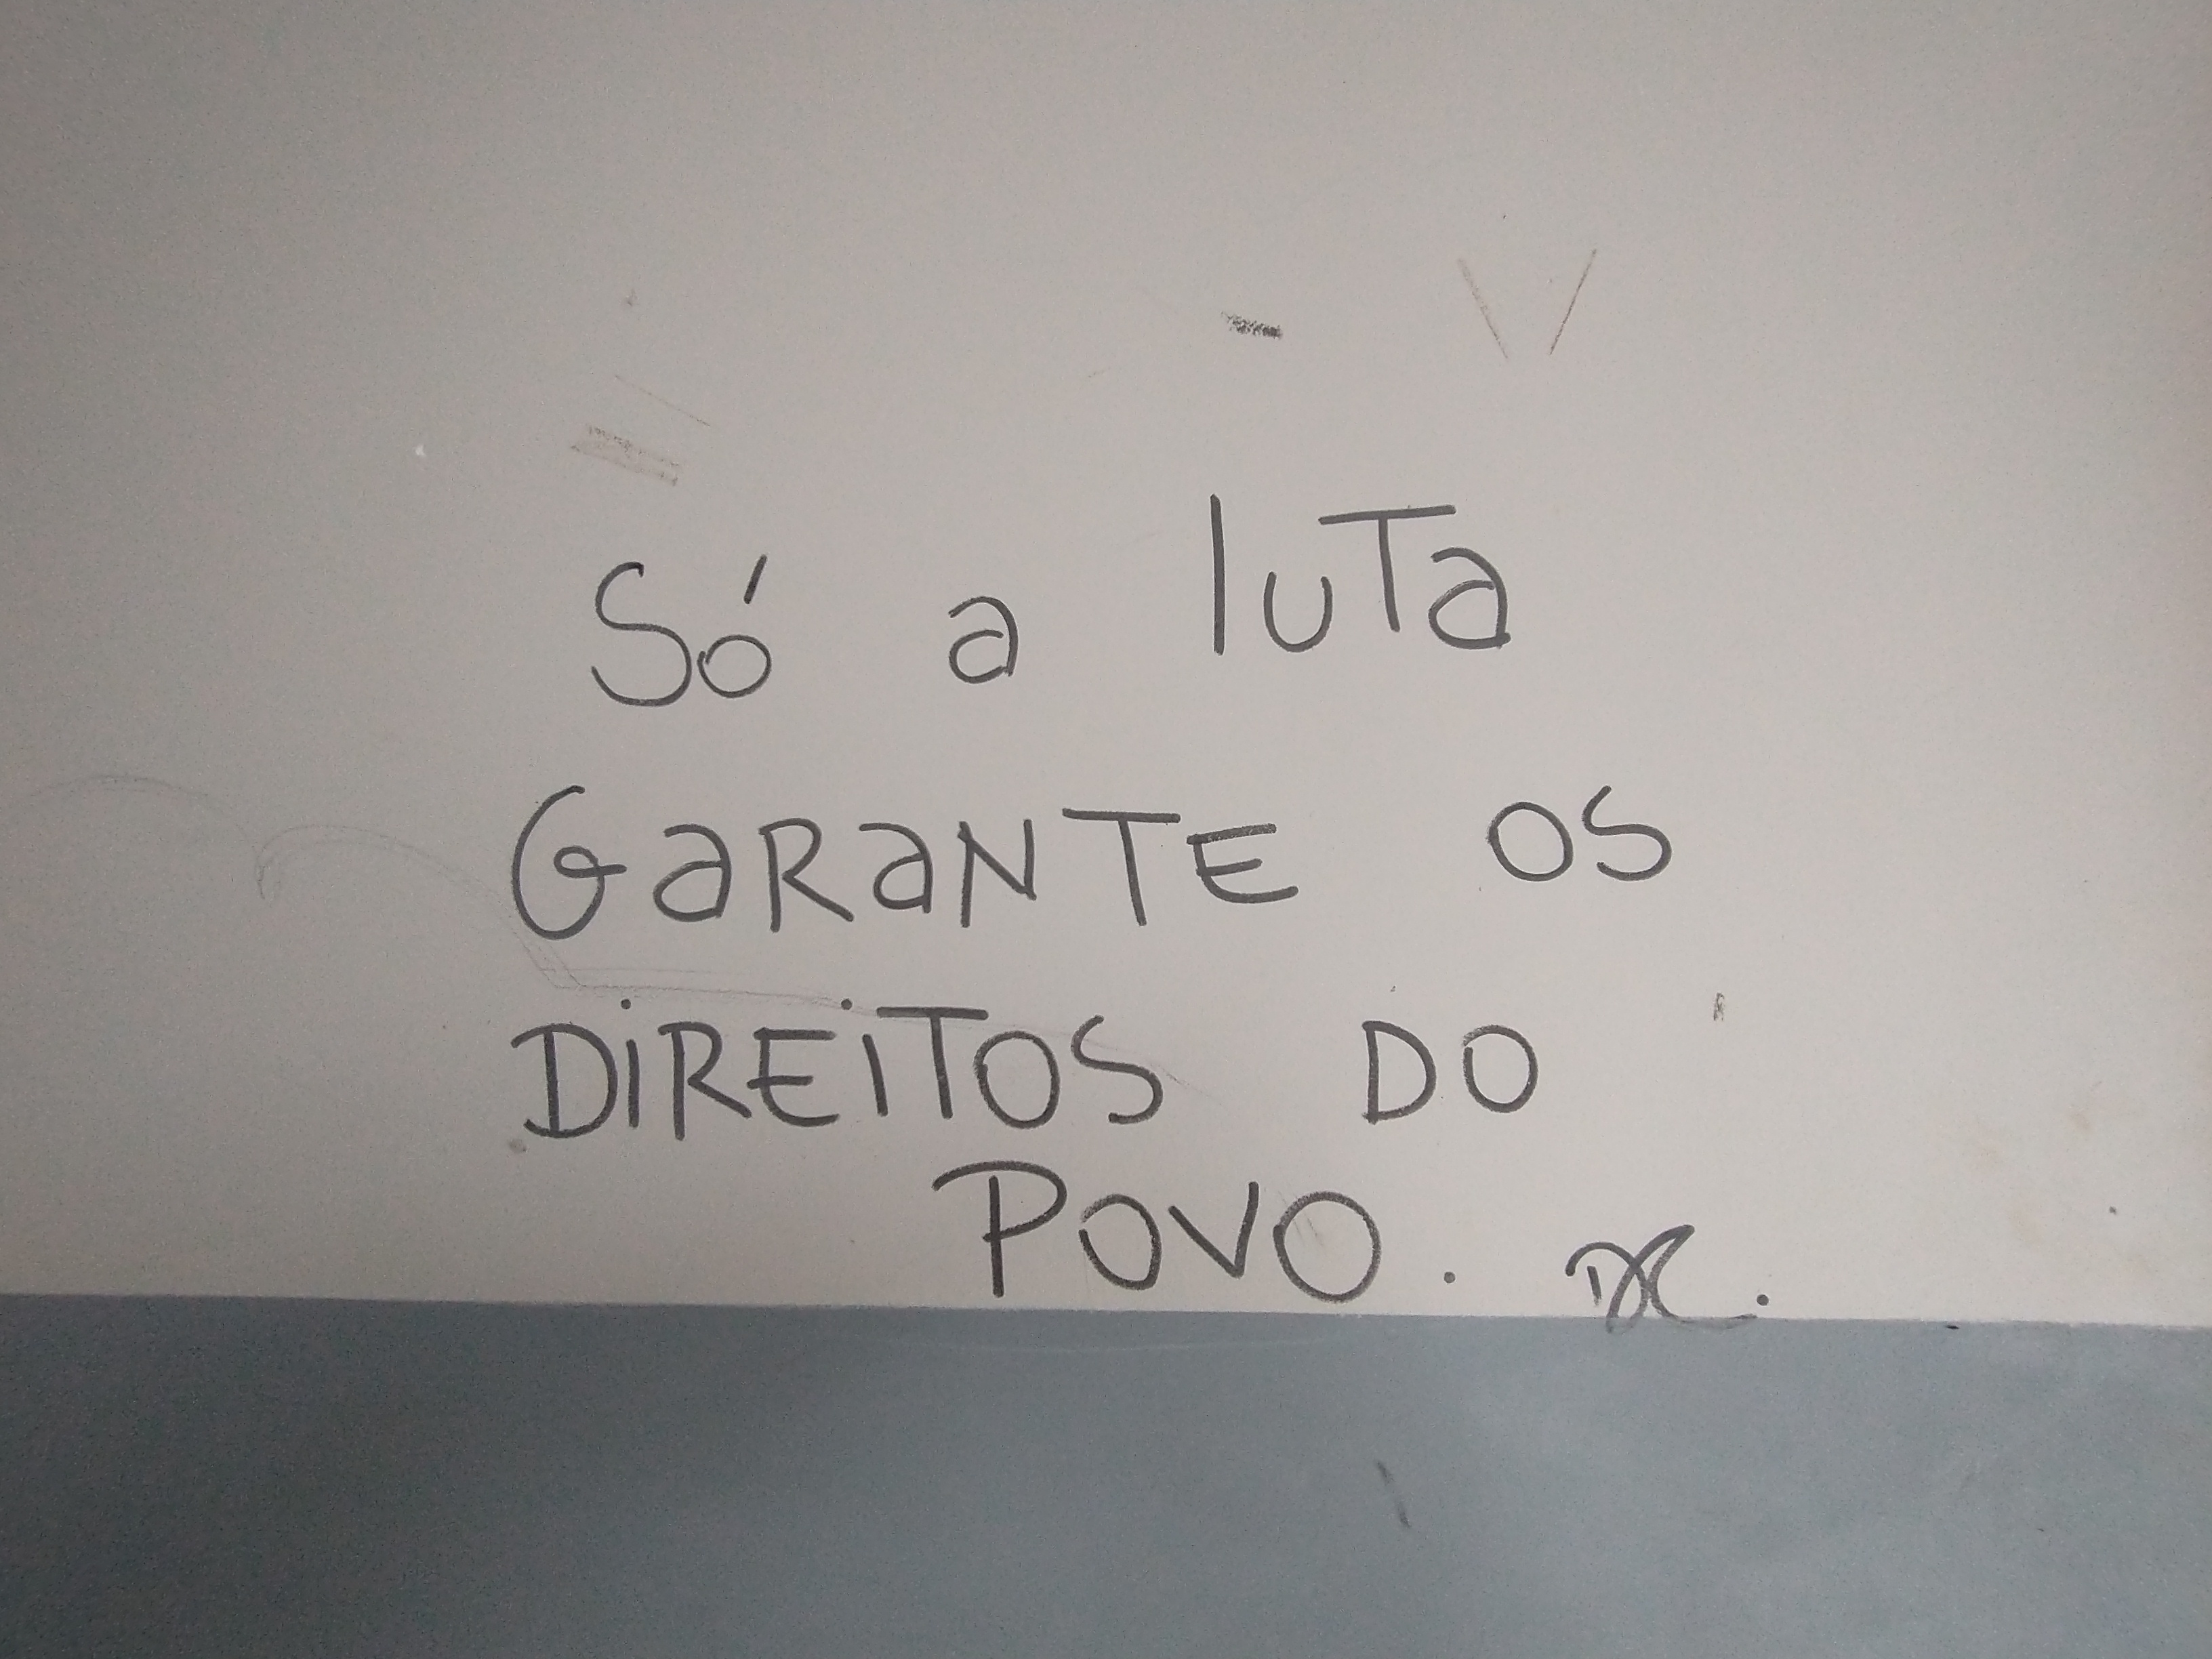 Só a luta
GaRaNTE OS
DiREiTOS DO
POVO.